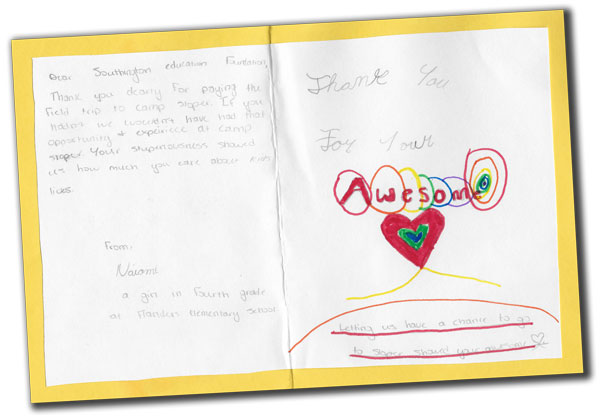 Dear Southington education Foundation,
Thank you dearly for paying the
field trip to camp sloper. If you
hadn't we wouldn't have had that
opportunity & experience at camp
sloper. Your
us how much you care about
lives.
From,
Naiomi
a girl in fourth grade
at Flanders Elementary school
Thank You
For Your
Awesome
Letting us have a chance to go
to sloper showed your